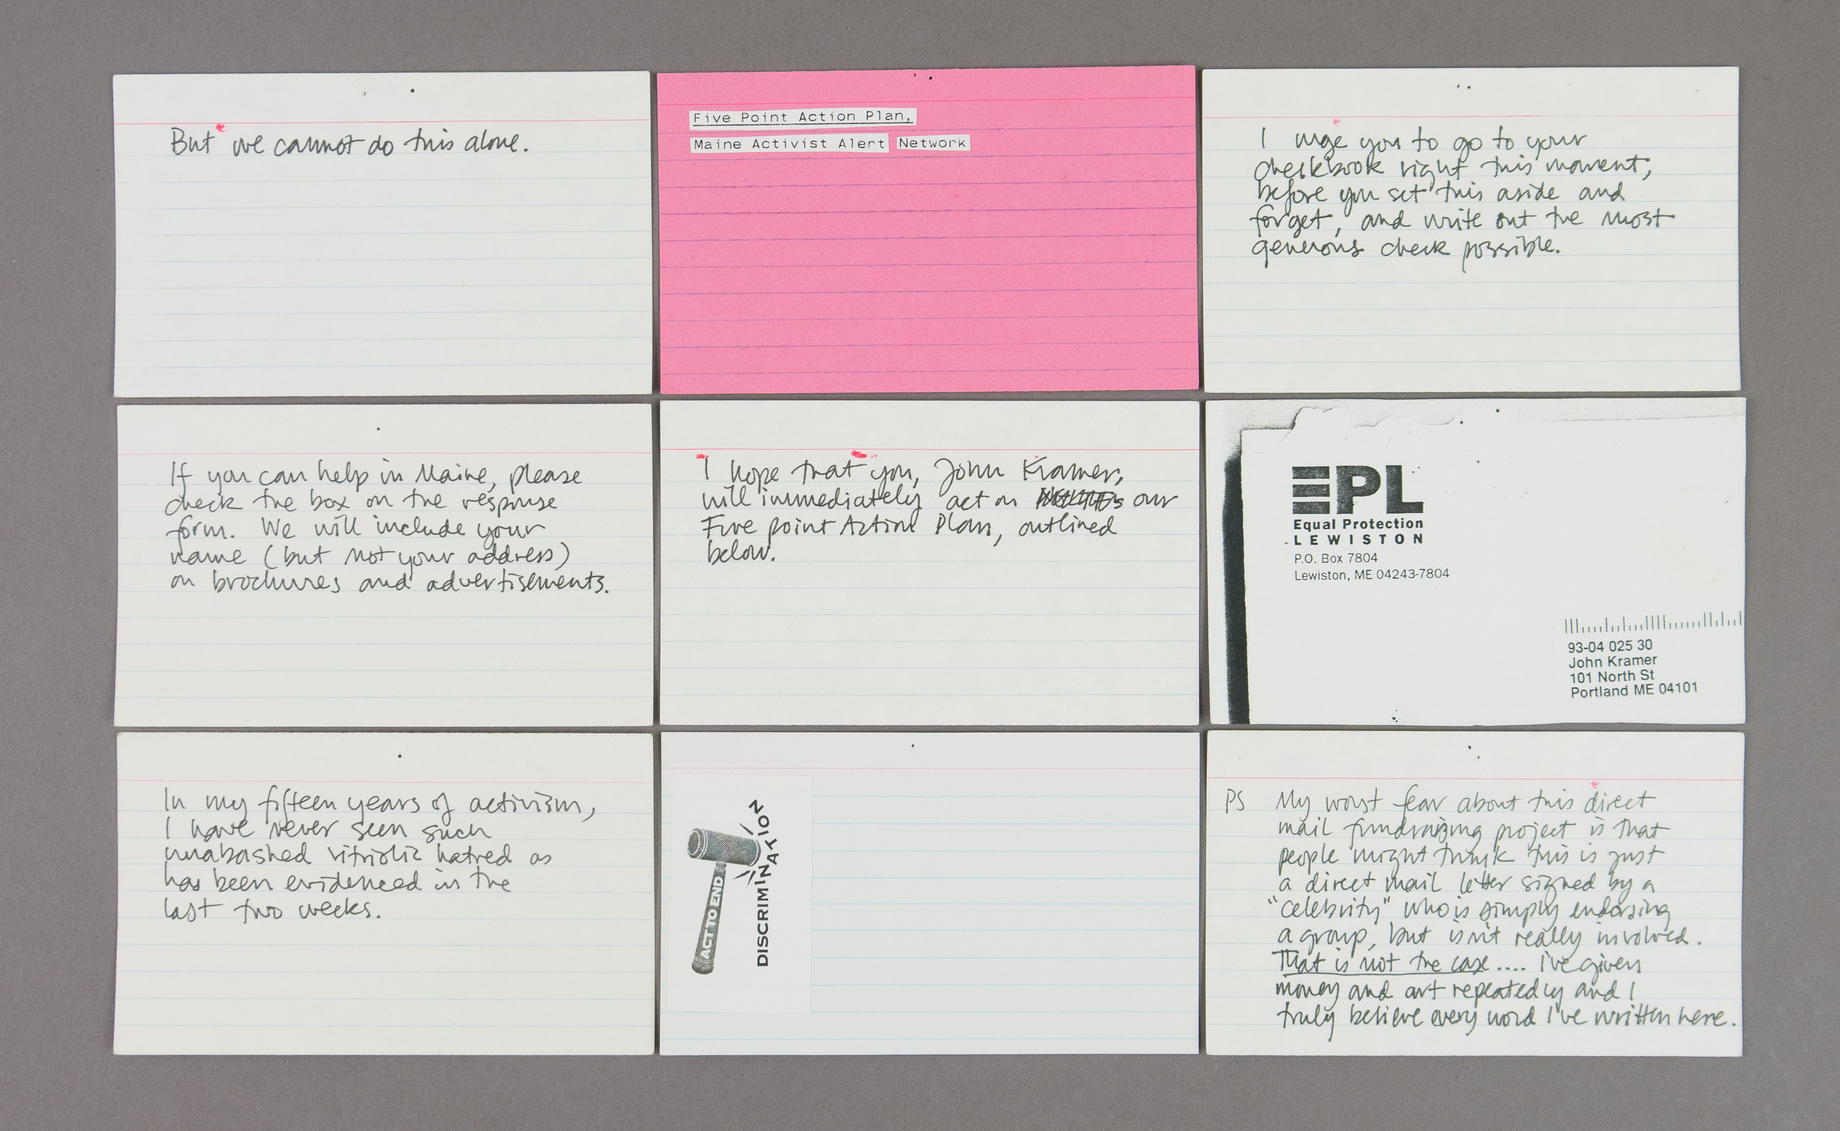 But we cannot do this alone.
Five Point Action Plan,
Maine Activist Alert Network
I urge you to go to your
checkbook right this moment,
before you set this aside and
forget, and write out the most
generous check possible.
If you can help in Maine, please
check the box on the response
form. We will include your
name (but not your address)
on brochures and advertisements.
I hope that you, John Kramer,
will immediately act on our
Five point Action Plan, outlined
below.
EPL
Equal Protection
LEWISTON
P.O. Box 7804
Lewiston, ME 04243-7804
93-04 025 30
John Kramer
101 North St
Portland ME 04101
In my fifteen years of activism,
I have never seen such
unabashed vitriolic hatred as
has been evidenced in the
last two weeks.
ACT TO END
DISCRIMINATION
PS My worst fear about this direct
mail fundraising project is that
people might think this is just
a direct mail letter signed by a
"celebrity" who is simply endorsing
a group, but isn't really involved.
That is not the case.... I've given
money and art repeatedly and I
truly believe every word I've written here.